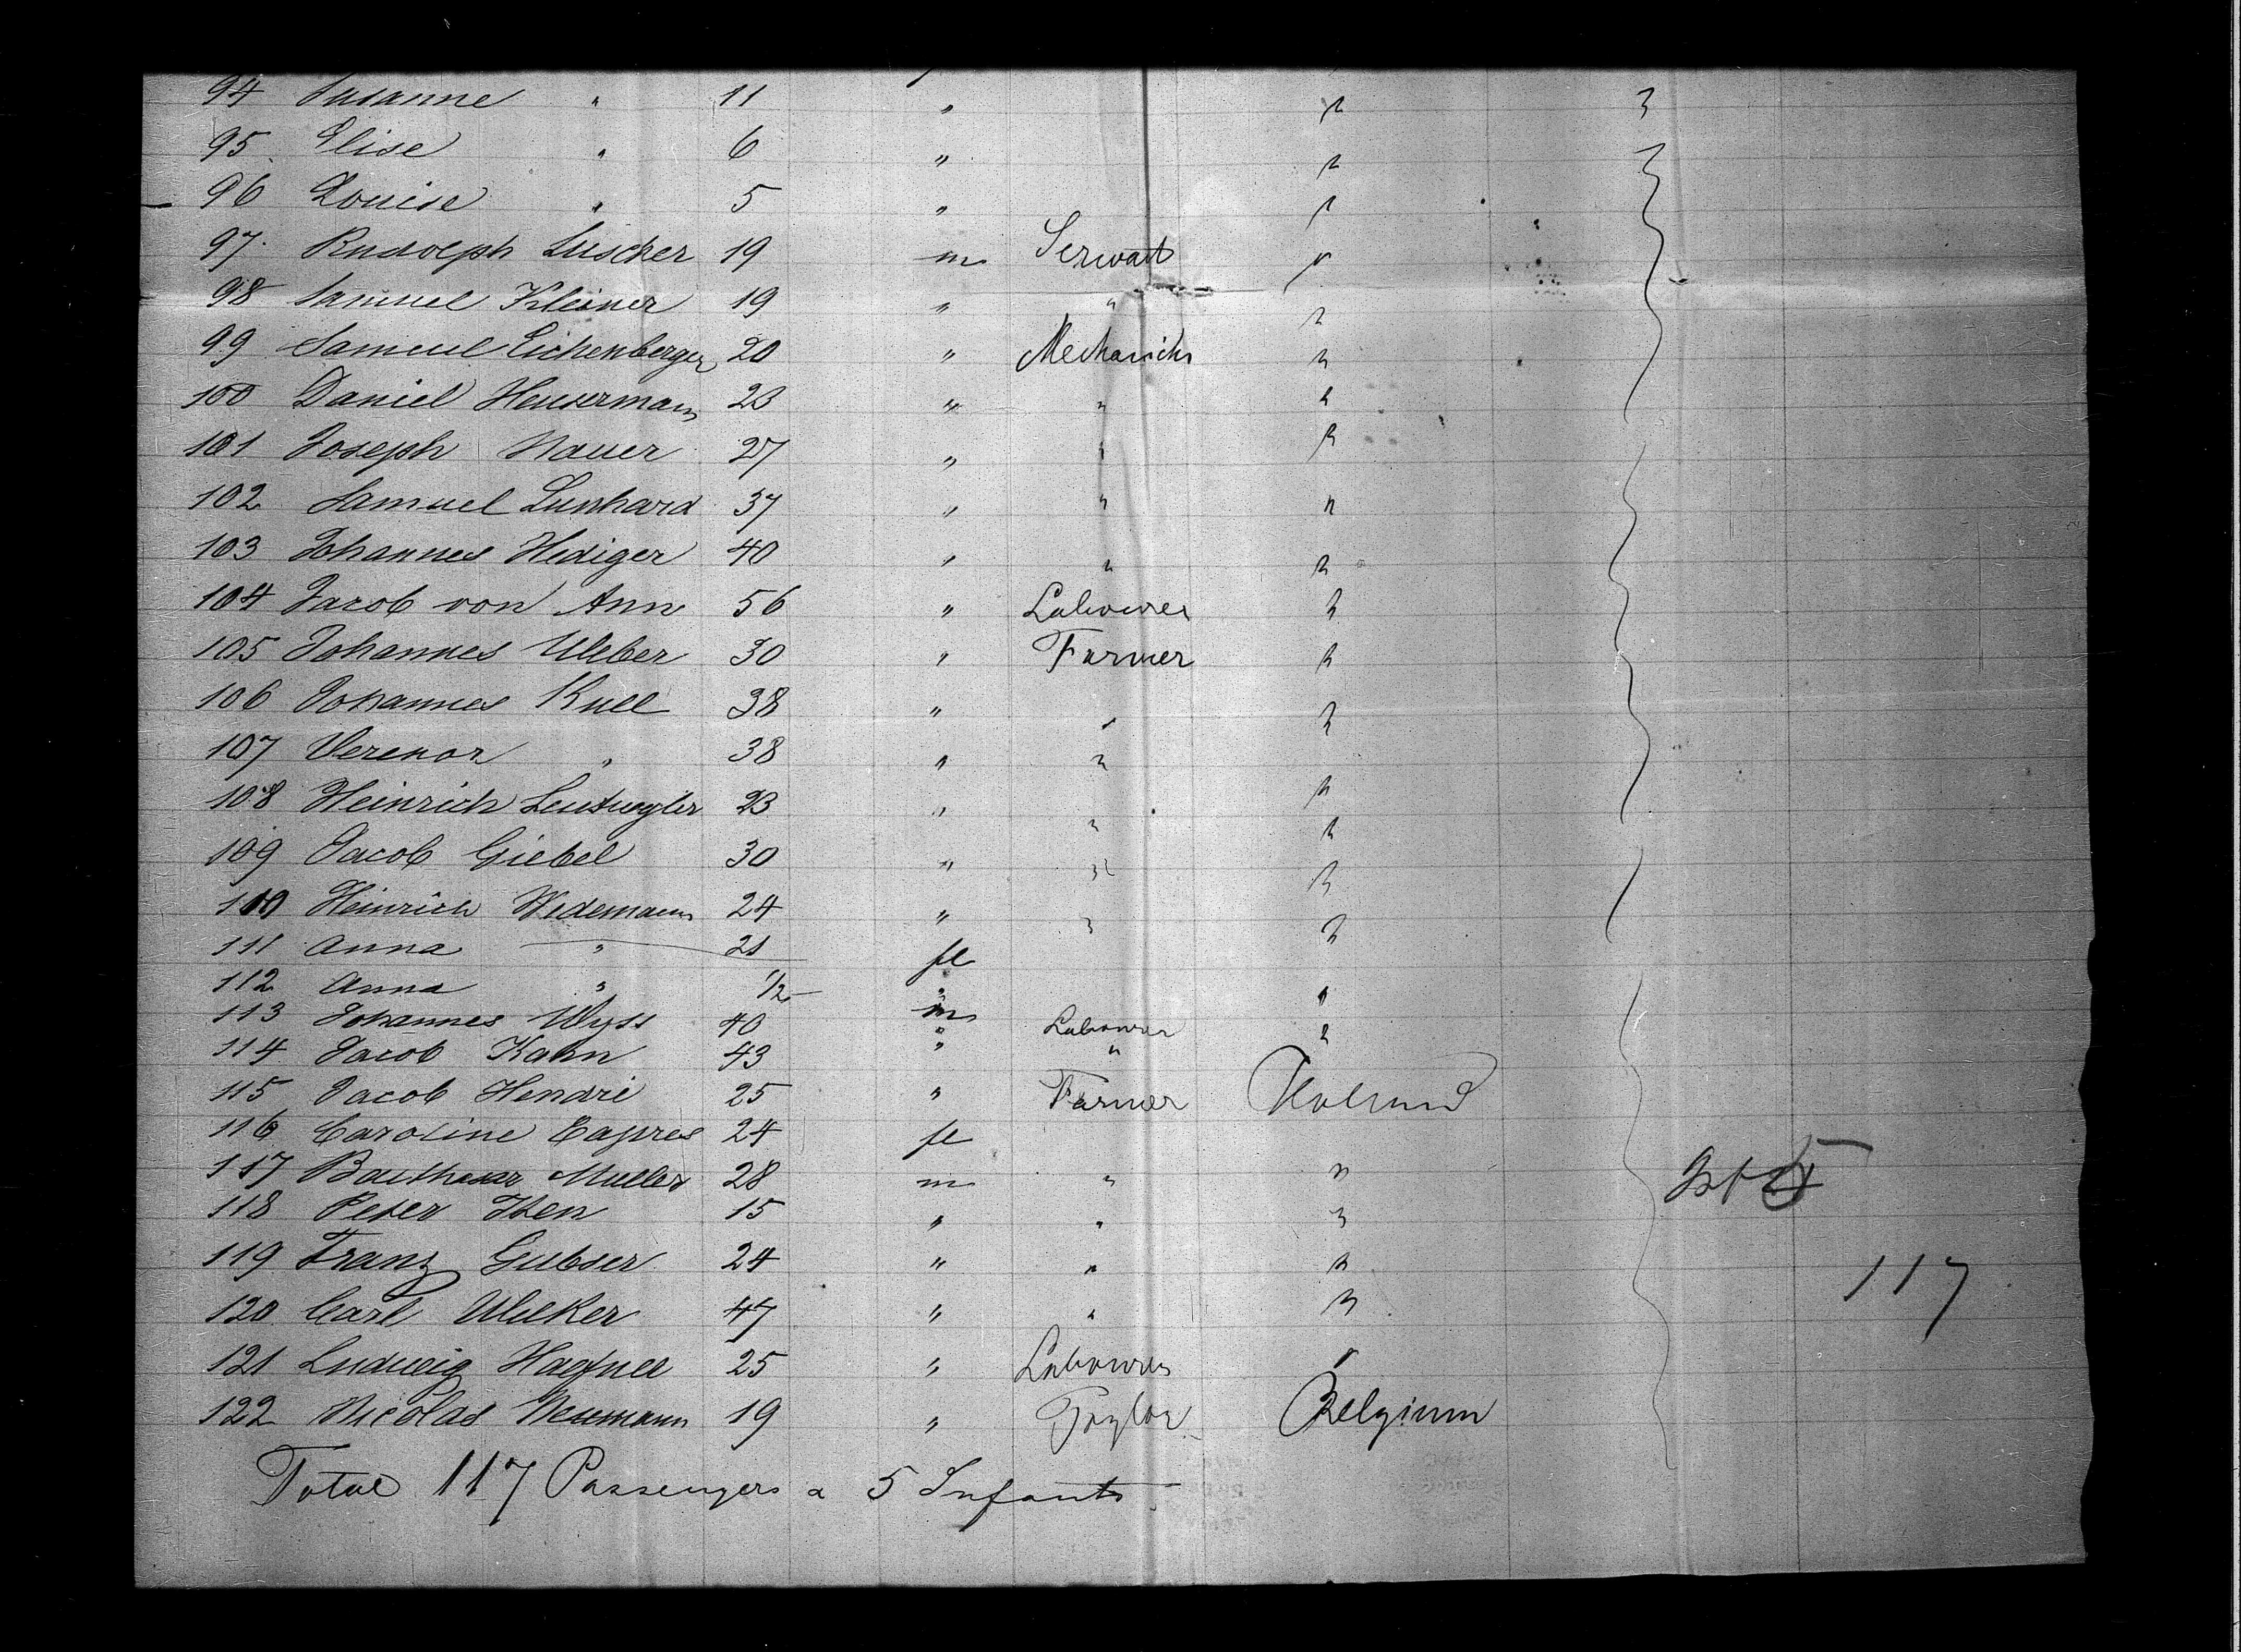 94 Susanne " 11 " "
95 Elise " 6 " "
96 Louise " 5 " "
97 Rudolph Luscher 19 m Servant "
98 Samuel Kleiner 19 " " "
99 Samuel Eichenberger 20 " Mechanicks "
100 Daniel Heusermann 23 " " "
101 Joseph Nauer 27 " " "
102 Samuel Lunhard 37 " " "
103 Johannes Hediger 40 " " "
104 Jacob von Ann 56 " Labourer "
105 Johannes Weber 30 " Farmer "
106 Johannes Kull 38 " " "
107 Verenor " 38 " "
108 Heinrich Leutwyler 23 " " "
109 Jacob Giebel 30 " " "
110 Heinrich Wedemann 24 " " "
111 Anna " 21 fl "
112 Anna " 1/2 "
113 Johannes Wyss 40 m Labourer "
114 Jacob Kahn 43 " " "
115 Jacob Hendri 25 " Farmer Holland
116 Caroline Capres 24 fl
117 Balthasar Muller 28 m " "
118 Peter Iten 15 " " "
119 Franz Gubser 24 " " "
117
120 Carl Welker 47 " " "
121 Ludwig Hafner 25 " Labourer "
122 Nicolas Neumann 19 " Taylor Belgium
Total 117 Passengers & 5 Infants